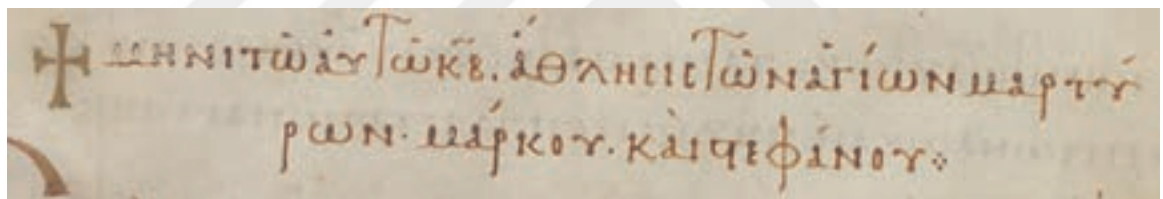 ✝ μηνὶ τῶ ἀυτῶ κβ. ἄθλησις τῶν ἁγίων μαρτύ
ρων· μάρκου. καὶ στεφάνου: